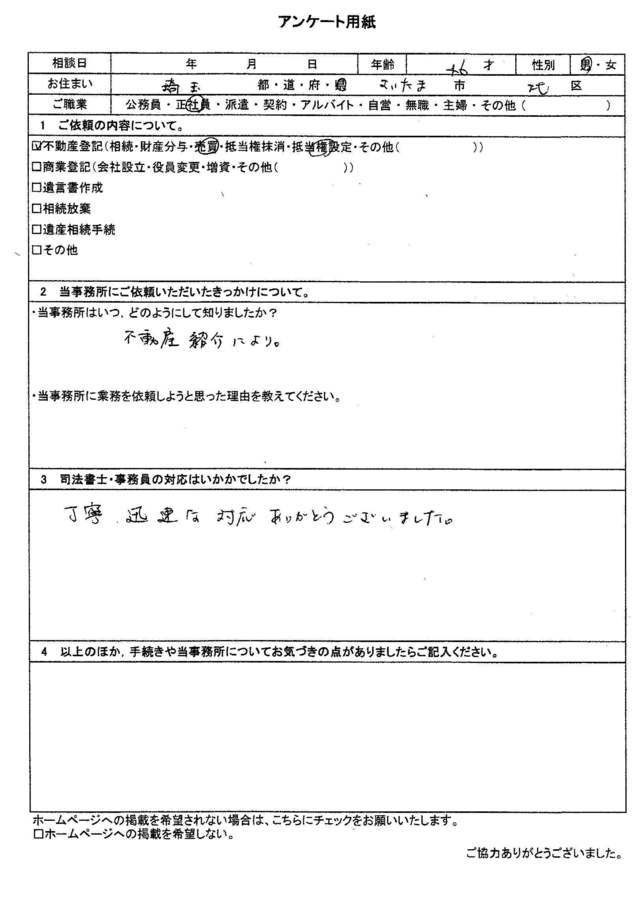 アンケート用紙
相談日 年 月 日 年齢 才 性別 男・女
お住まい 埼玉 都・道・府・県 さいたま 市 北 区
ご職業 公務員・正社員・派遣・契約・アルバイト・自営・無職・主婦・その他( )
1 ご依頼の内容について。
☑不動産登記(相続・財産分与・売買・抵当権抹消・抵当権設定・その他( ))
□商業登記(会社設立・役員変更・増資・その他( ))
□遺言書作成
□相続放棄
□遺産相続手続
□その他
2 当事務所にご依頼いただいたきっかけについて。
・当事務所はいつ、どのようにして知りましたか?
不動産 紹介により。
・当事務所に業務を依頼しようと思った理由を教えてください。
3 司法書士・事務員の対応はいかかでしたか?
丁寧、迅速な 対応 ありがとうございました。
4 以上のほか、手続きや当事務所についてお気づきの点がありましたらご記入ください。
ホームページへの掲載を希望されない場合は、こちらにチェックをお願いいたします。
□ホームページへの掲載を希望しない。
ご協力ありがとうございました。